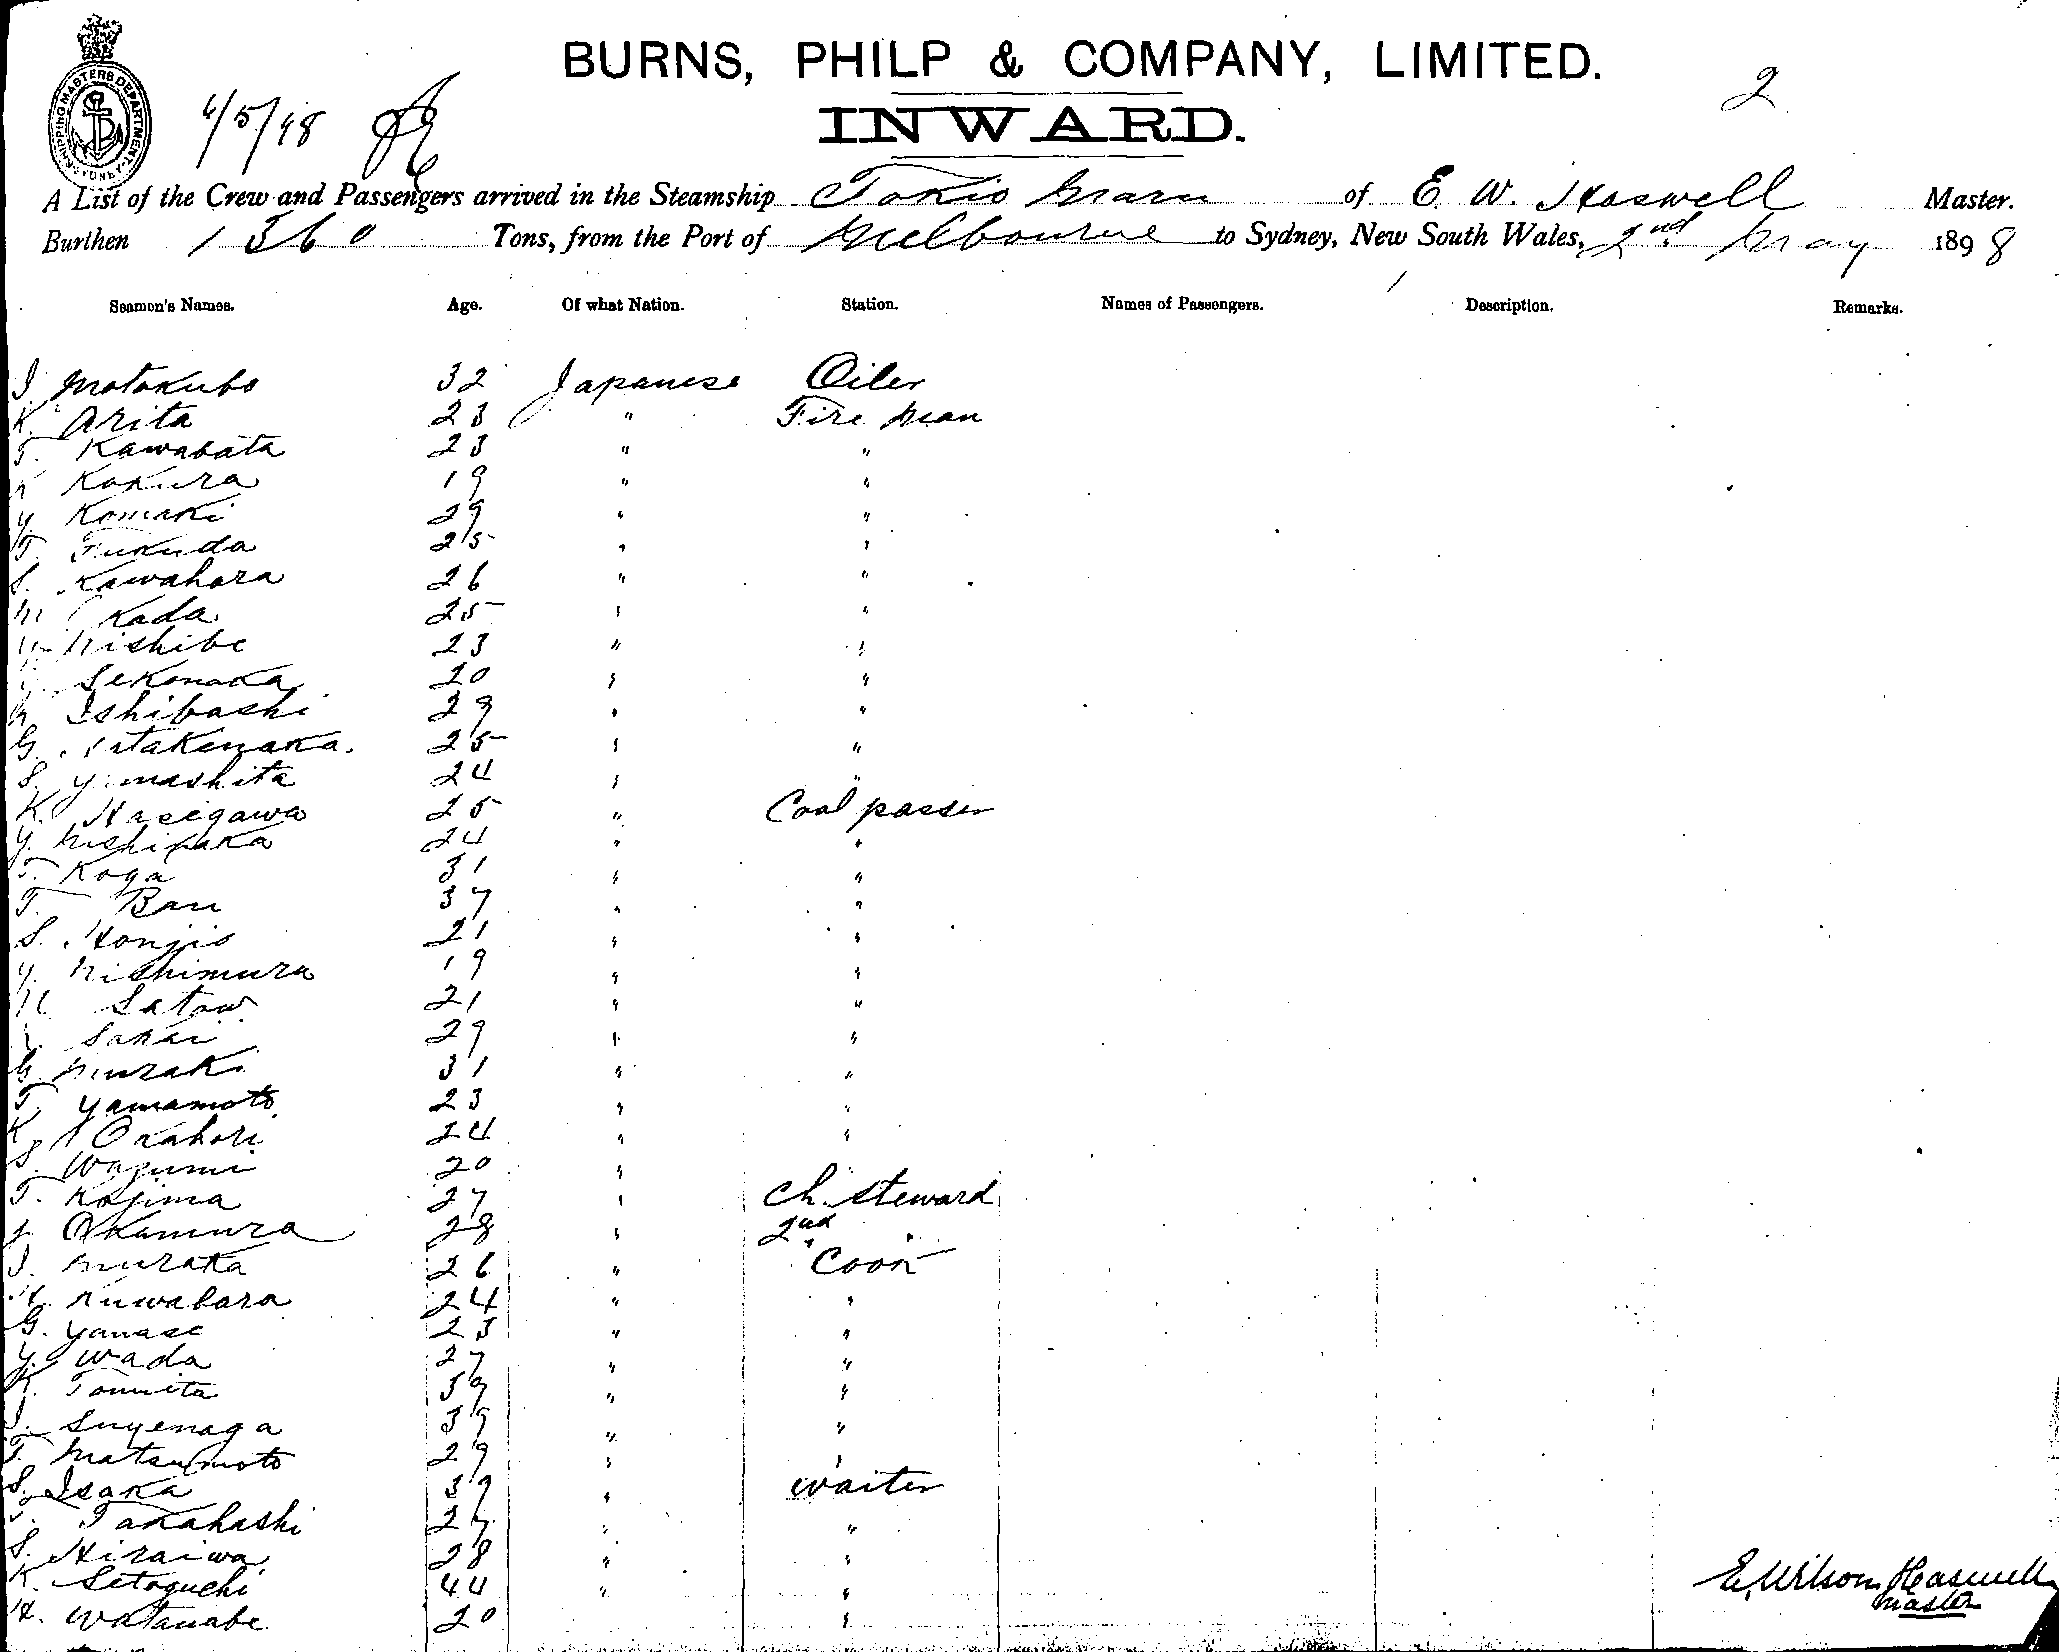 BURNS, PHILP & COMPANY, LIMITED.
2
INWARD.
SHIPPING MASTERS DEPARTMENT SYDNEY
6/5/98
A List of the Crew and Passengers arrived in the Steamship Tokio Maru of E. W. Haswell Master.
Burthen 1360 Tons, from the Port of Melbourne to Sydney, New South Wales, 2nd May 1898
Seamen's Names. Age. Of what Nation. Station. Names of Passengers. Description. Remarks.
I. Motokubo 32 Japanese Oiler
K. Arita 23 " Fire man
T. Kawabata 23 " "
K Kokura 19 " "
Y. Komaki 29 " "
T. Fukuda 25 " "
S. Kawahara 26 " "
Kada 25 " "
Nishibe 23 " "
Sekonaka 20 " "
Ishibashi 29 " "
G. 25 " "
S. Yamashita 24 " "
K. Hasegawa 25 " Coal passer
Y. Nishipaka 24 " "
T. Koga 31 " "
T. Ban 37 " "
S. Honjio 21 " "
Y. Nishimura 19 " "
Satow 21 " "
Sakai 29 " "
G. Muraki 31 " "
T. Yamamoto 23 " "
K. Okahori 24 " "
S. Wazumi 20 " "
T. Kojima 27 " Ch. Steward
Okamura 28 " 2nd "
I. Murata 26 " Cook
H. Kuwabara 24 " "
G. Yanase 23 " "
Y. Wada 27 " "
K. Tomita 39 " "
Suyenaga 39 " "
T. Matsumoto 29 " "
S. Isaka 39 " Waiter
T. Takahashi 27 " "
S. Hiraiwa 28 " "
K. Setoguchi 44 " "
H. Watanabe 20 "
E. Wilson Haswell
Master